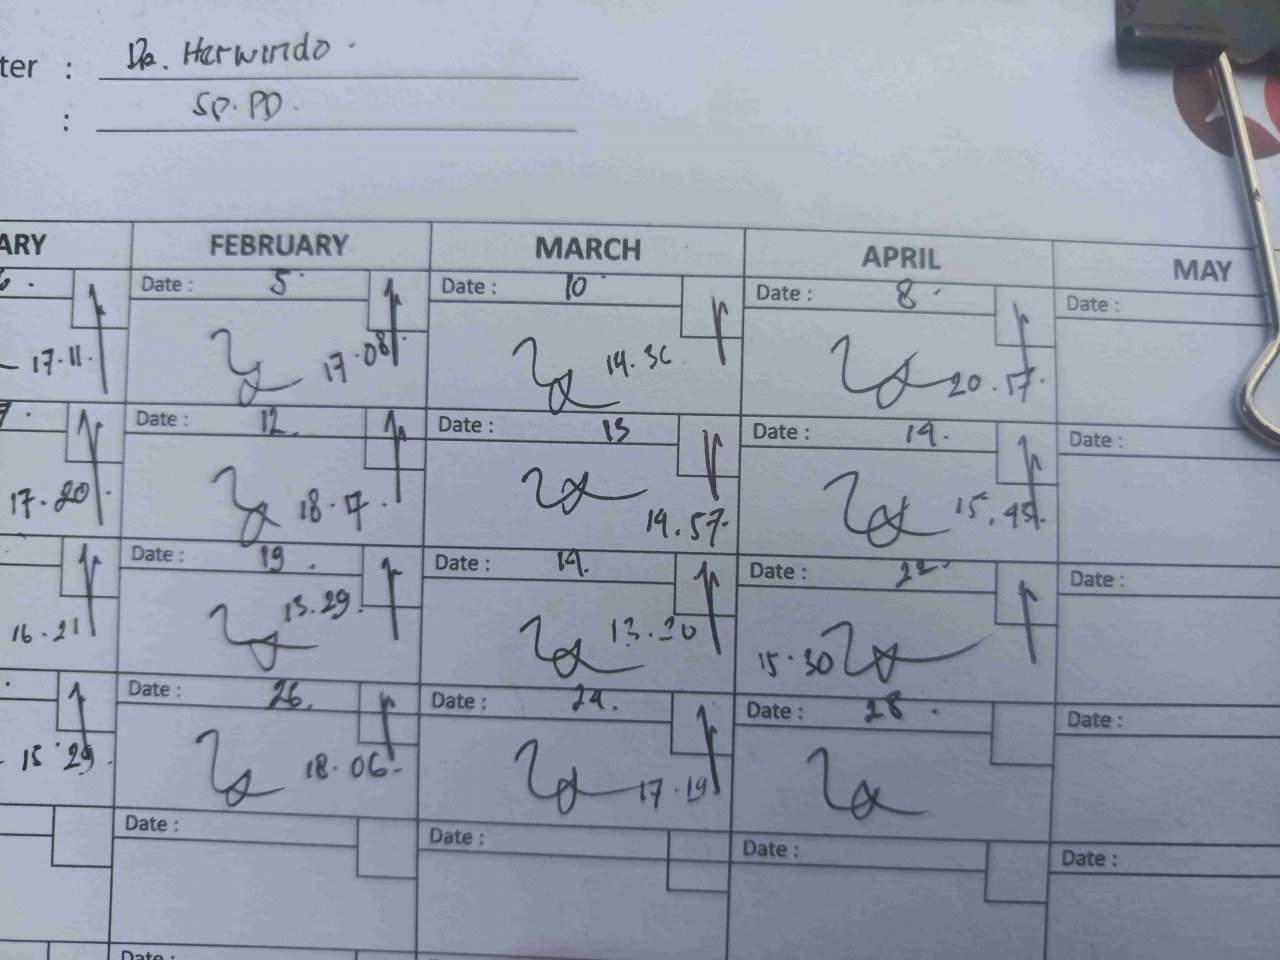 ter : Dr. Herwindo.
: SP. PD.
ARY FEBRUARY MARCH APRIL MAY
6. Date : 5 Date : 10 Date : 8 Date :
17.11. 17.08 14.36 20.57.
Date : 12 Date : 13 Date : 14. Date :
17.20 18.17. 14.57. 15.45
Date : 19. Date : 19. Date : 22 Date :
16.21 13.29. 13.20 15.30
Date : 26. Date : 24. Date : 28. Date :
15 29. 18.06. 17.19
Date : Date : Date : Date :
Date :